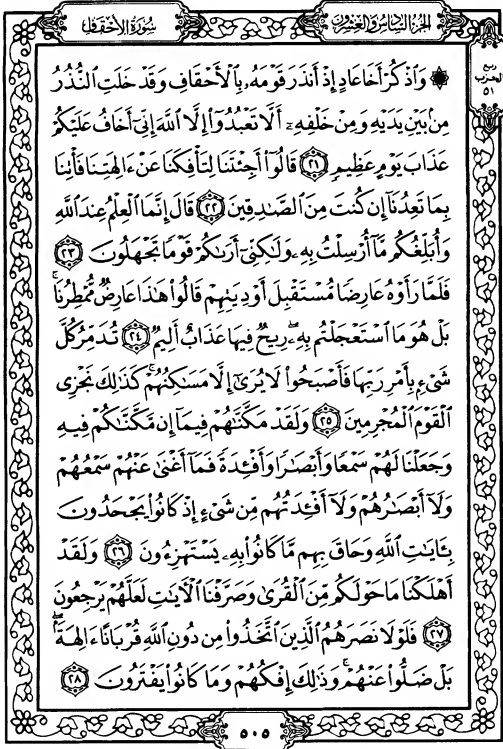 سورة الأحقاف
الجزء السادس والعشرون
ربع
الحزب
٥١
۞ وَاذْكُرْ أَخَا عَادٍ إِذْ أَنذَرَ قَوْمَهُۥ بِالْأَحْقَافِ وَقَدْ خَلَتِ النُّذُرُ
مِنۢ بَيْنِ يَدَيْهِ وَمِنْ خَلْفِهِۦٓ أَلَّا تَعْبُدُوٓا۟ إِلَّا اللَّهَ إِنِّىٓ أَخَافُ عَلَيْكُمْ
عَذَابَ يَوْمٍ عَظِيمٍ ٢١ قَالُوٓا۟ أَجِئْتَنَا لِتَأْفِكَنَا عَنْ ءَالِهَتِنَا فَأْتِنَا
بِمَا تَعِدُنَآ إِن كُنتَ مِنَ الصَّٰدِقِينَ ٢٢ قَالَ إِنَّمَا الْعِلْمُ عِندَ اللَّهِ
وَأُبَلِّغُكُم مَّآ أُرْسِلْتُ بِهِۦ وَلَٰكِنِّىٓ أَرَىٰكُمْ قَوْمًا تَجْهَلُونَ ٢٣
فَلَمَّا رَأَوْهُ عَارِضًا مُّسْتَقْبِلَ أَوْدِيَتِهِمْ قَالُوا۟ هَٰذَا عَارِضٌ مُّمْطِرُنَا ۚ
بَلْ هُوَ مَا اسْتَعْجَلْتُم بِهِۦ ۖ رِيحٌ فِيهَا عَذَابٌ أَلِيمٌ ٢٤ تُدَمِّرُ كُلَّ
شَىْءٍۭ بِأَمْرِ رَبِّهَا فَأَصْبَحُوا۟ لَا يُرَىٰٓ إِلَّا مَسَٰكِنُهُمْ ۚ كَذَٰلِكَ نَجْزِى
الْقَوْمَ الْمُجْرِمِينَ ٢٥ وَلَقَدْ مَكَّنَّٰهُمْ فِيمَآ إِن مَّكَّنَّٰكُمْ فِيهِ
وَجَعَلْنَا لَهُمْ سَمْعًا وَأَبْصَٰرًا وَأَفْـِٔدَةً فَمَآ أَغْنَىٰ عَنْهُمْ سَمْعُهُمْ
وَلَآ أَبْصَٰرُهُمْ وَلَآ أَفْـِٔدَتُهُم مِّن شَىْءٍ إِذْ كَانُوا۟ يَجْحَدُونَ
بِـَٔايَٰتِ اللَّهِ وَحَاقَ بِهِم مَّا كَانُوا۟ بِهِۦ يَسْتَهْزِءُونَ ٢٦ وَلَقَدْ
أَهْلَكْنَا مَا حَوْلَكُم مِّنَ الْقُرَىٰ وَصَرَّفْنَا الْءَايَٰتِ لَعَلَّهُمْ يَرْجِعُونَ
٢٧ فَلَوْلَا نَصَرَهُمُ الَّذِينَ اتَّخَذُوا۟ مِن دُونِ اللَّهِ قُرْبَانًا ءَالِهَةًۢ ۖ
بَلْ ضَلُّوا۟ عَنْهُمْ ۚ وَذَٰلِكَ إِفْكُهُمْ وَمَا كَانُوا۟ يَفْتَرُونَ ٢٨
٥٠٥